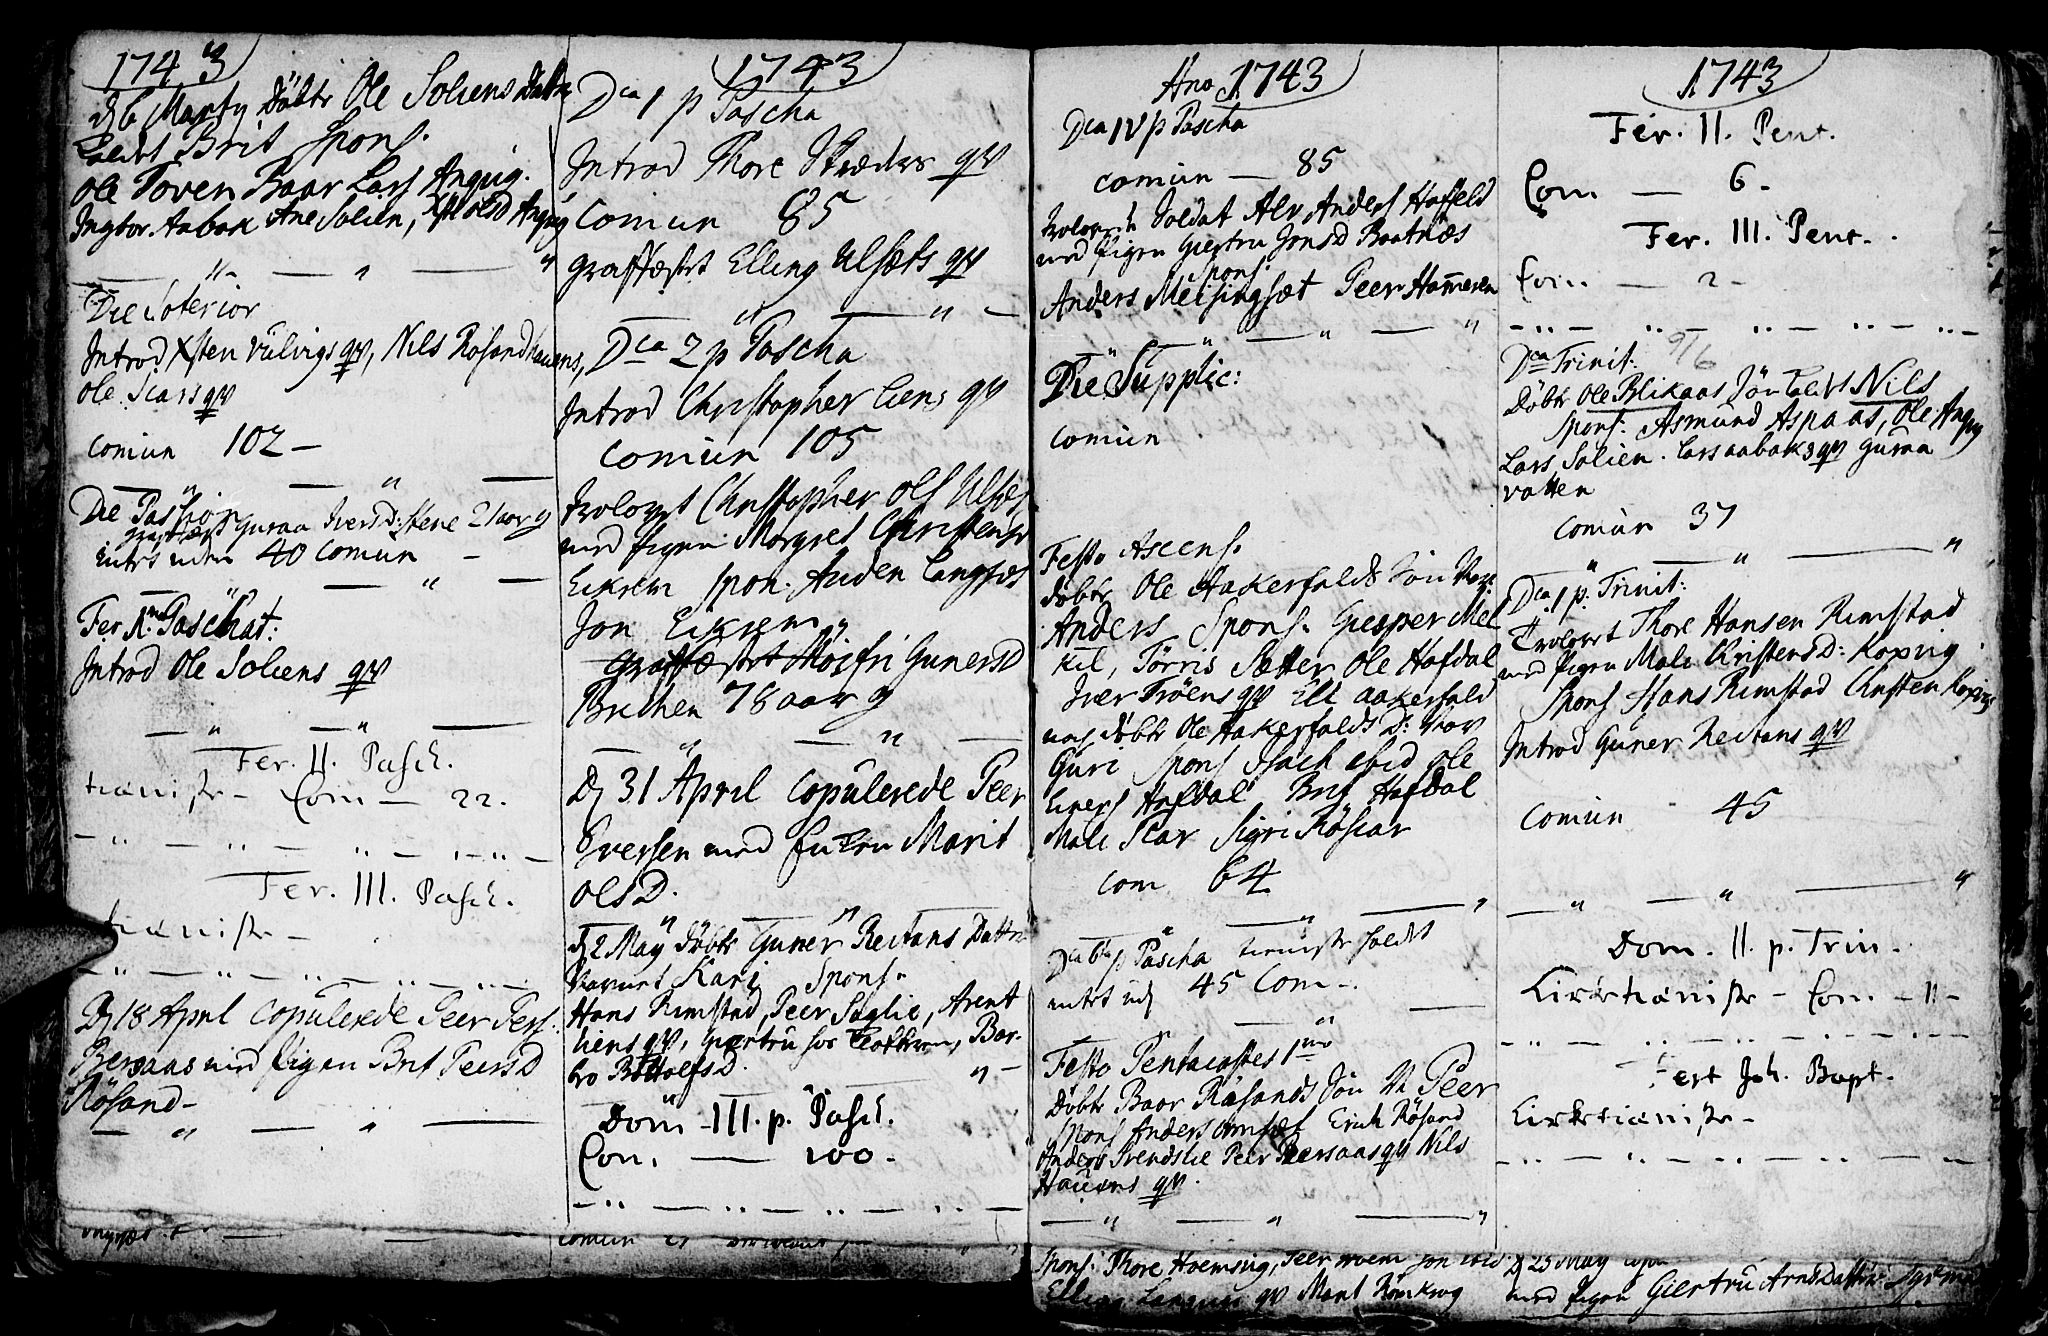 1743
Dj 6 Martij Döbte Ole Soliens Datter
Kaldet Brit Spons.
Ole Toven Baar Lars Angvig.
Ingbor Aabak Ane Solien, Ols D Angvig
Die Soterior
Introd Xsten Vulvigs qv, Nils Rosandhauens,
Ole Scars qv
comun 102 -
Die Passion
Guraa Iversd: Stene 21 aar
40 comun -
Fer 1. Paschat:
Introd Ole Soliens qv
Fer. II. Pasch.
tieniste - Com - 22.
Fer. III. Pasch.
tieniste -
Dj 18 April copulerede Peer Pers.
Bersaas med Pigen Brit PeersD
Rösand -
1743
Dca 1 p Pascha
Introd Thore Stræders qv
Comun 85
graffæstet Elling Ulsæts qv
Dca 2 p Pascha
Introd Christopher Liens qv
comun 105
trolovet Christopher Ols Ulsæt
med Pigen Margret Christensd
Eikrem spon. Auden Langsæt
Jon Eikrem
Graffæstet Möifri GunersD
Bruchen 78 aar g
Dj 31 April copulerede Peer
Iversen med Enken Marit
OlsD.
dj 2 Maij döbte Guner Reitans Datter
Navnet Kari Spons.
Hans Rimstad, Peer Sæglie, Arent
Liens qv, Giertru
bro BottolfsD.
Dom - III. p. Pasch.
Com. — 100 -
comun
Ano 1743
Dca IV p Pascha
comun — 85
trolovede Soldat Alv Anders Hafseld
med Pigen Giertru JonsD Baatnæs
Spons.
Anders Meisingsæt Peer Hameren
Die Supplic:
comun
Festo Ascens.
döbte Ole Aakerfalds Sön
Anders Spons. Giesper Mel
kil, Törris Sætter Ole Hafdal
Iver Tröens qv Elt aakerfald
nag döbte Ole Aakerfalds D: Nav
Guri Spons Isach ibid Ole
Hafdal Brit Hafdal
Mali Scar Sigri Röscar
com 64
Dca 6ta p Pascha tieniste holdt
45 Com -
Festo Pentacostes 1mo
Döbte Baar Rösands Sön N Peer
Spons Anders Erich Rösand
Anders Trendslie Peer Bersaas qv Nils
Hauens qv.
Spons: Thore Hoemsvig, Peer
Elling qv Marit
1743
Fer. II. Pent.
Com — 6 -
Fer. III. Pent.
Com — 2 -
Dca Trinit: 9/6
Döbte Ole Blikaas Sön Kaldet Nils
Spons. Asmund Aspaas, Ole Angvig
Lars Solien. Lars aabaks qv Guraa
vatten
comun 37
Dca 1 p. Trinit:
Trolovet Thore Hansen Rimstad
med Pigen Mali ChristensD: Kopvig
Spons Hans Rimstad Christen Kopvig
Introd Guner Reitans qv
comun 45
Dom. II. p. Trin.
Kirketieniste - Com - 11 -
Fest Joh. Bapt.
Kirketieniste -
Dj 25 May
med Pigen Giertru ArnsDatter